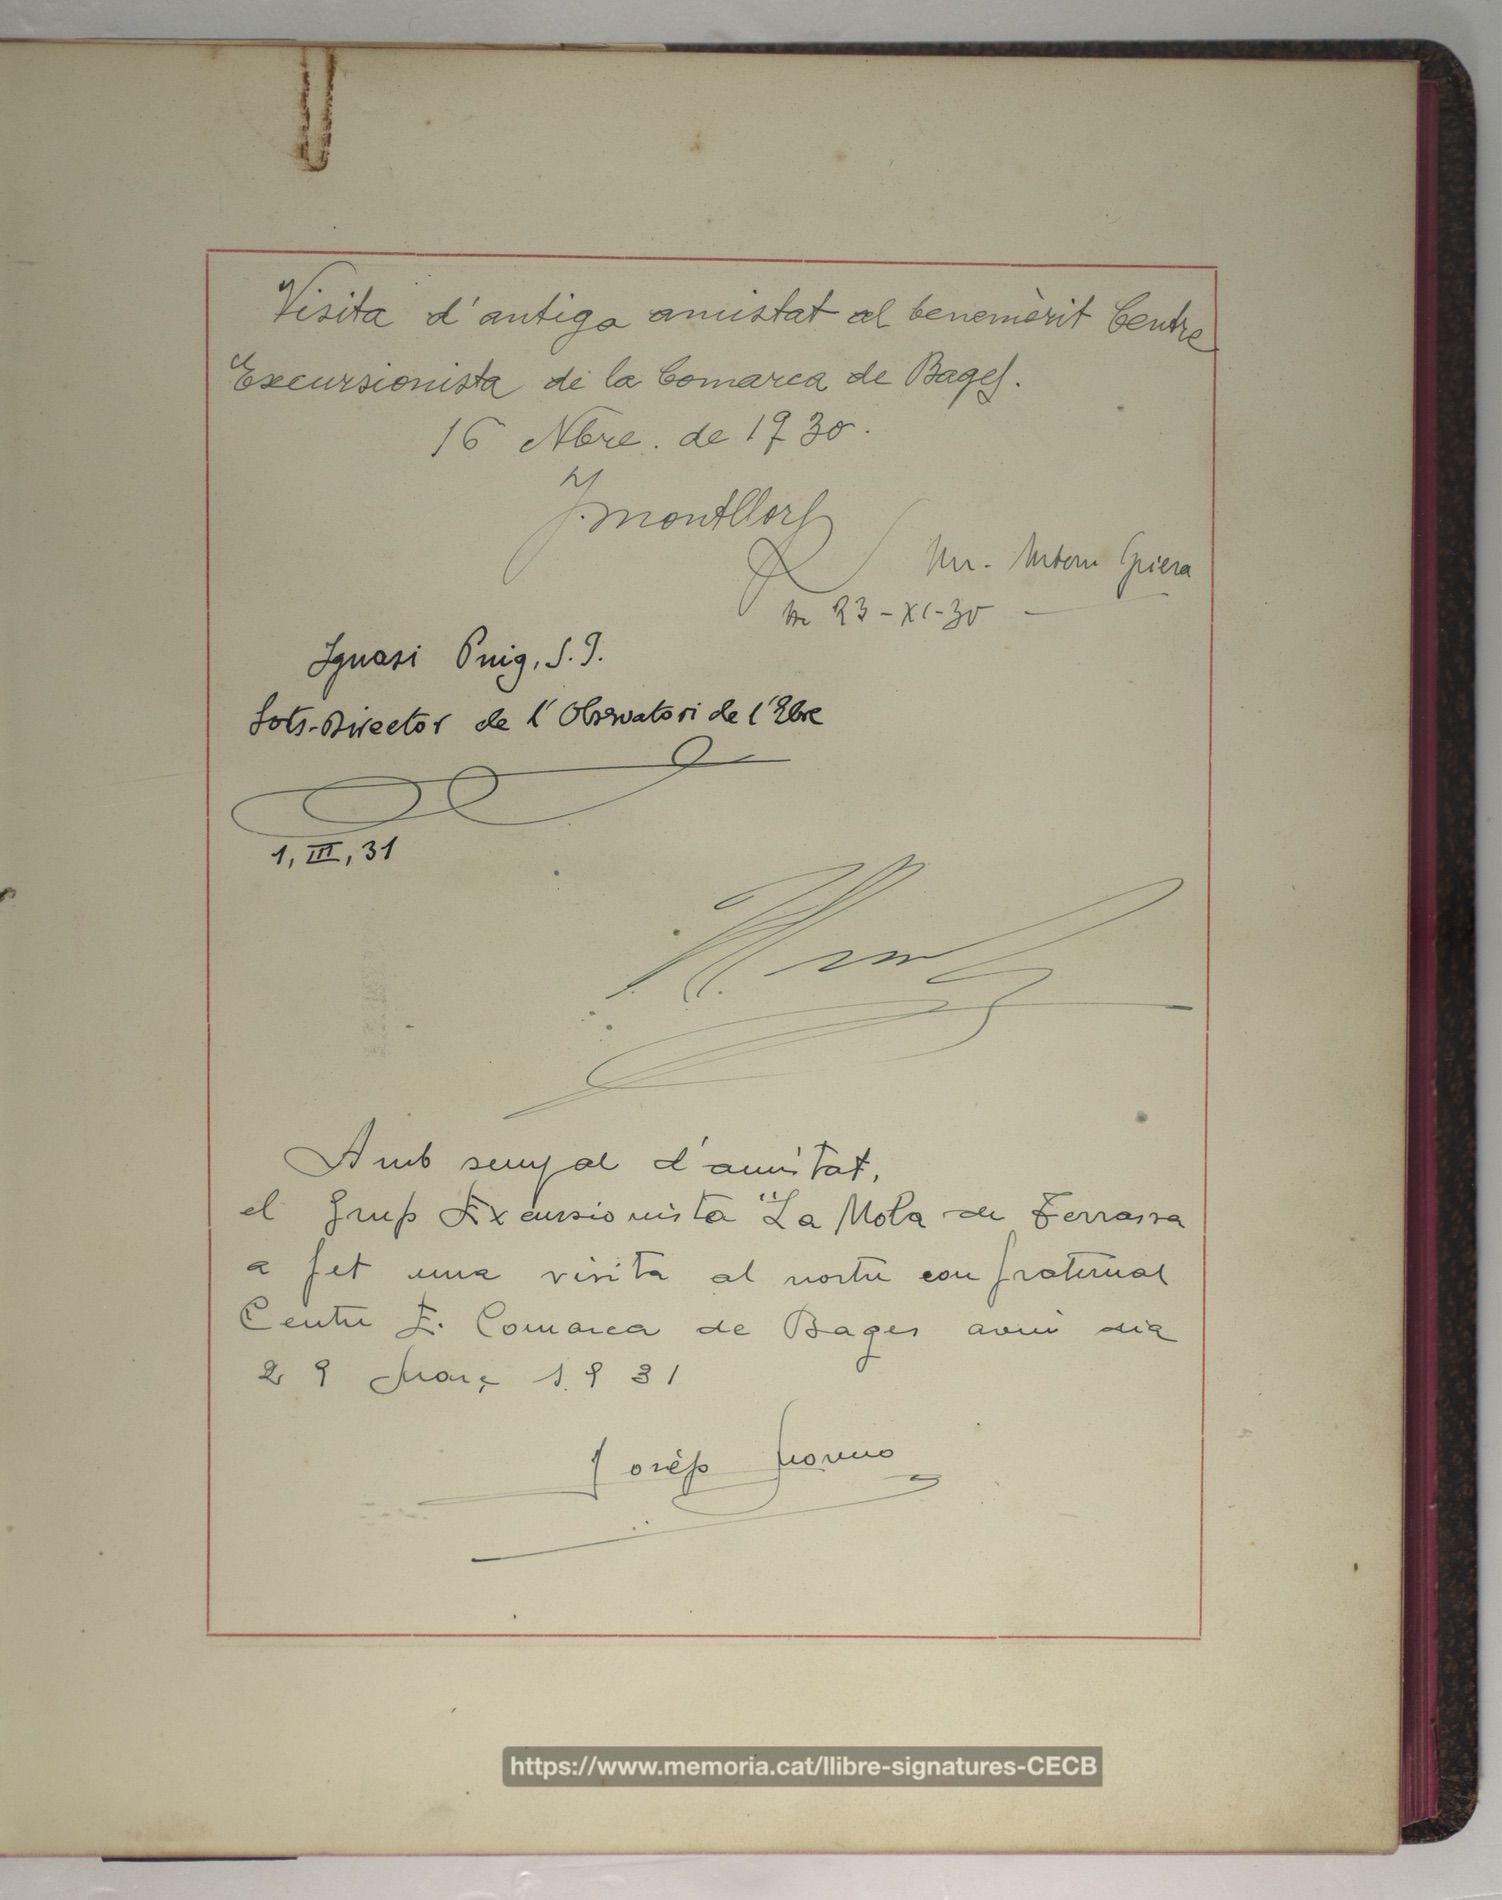 Visita d'antiga amistat al benemèrit Centre
Excursionista de la Comarca de Bages.
16 Nbre. de 1930.
J. Montllor
Mn. Antoni Griera
23-XI-30
Ignasi Puig, S.J.
Sots-Director de l'Observatori de l'Ebre
1, III, 31
Amb senyal d'amistat,
el Grup Excursionista "La Mola de Terrassa
a fet una visita al nostre confraternal
Centre E. Comarca de Bages avui dia
29 Març 1931
Josép Moreno
https://www.memoria.cat/llibre-signatures-CECB